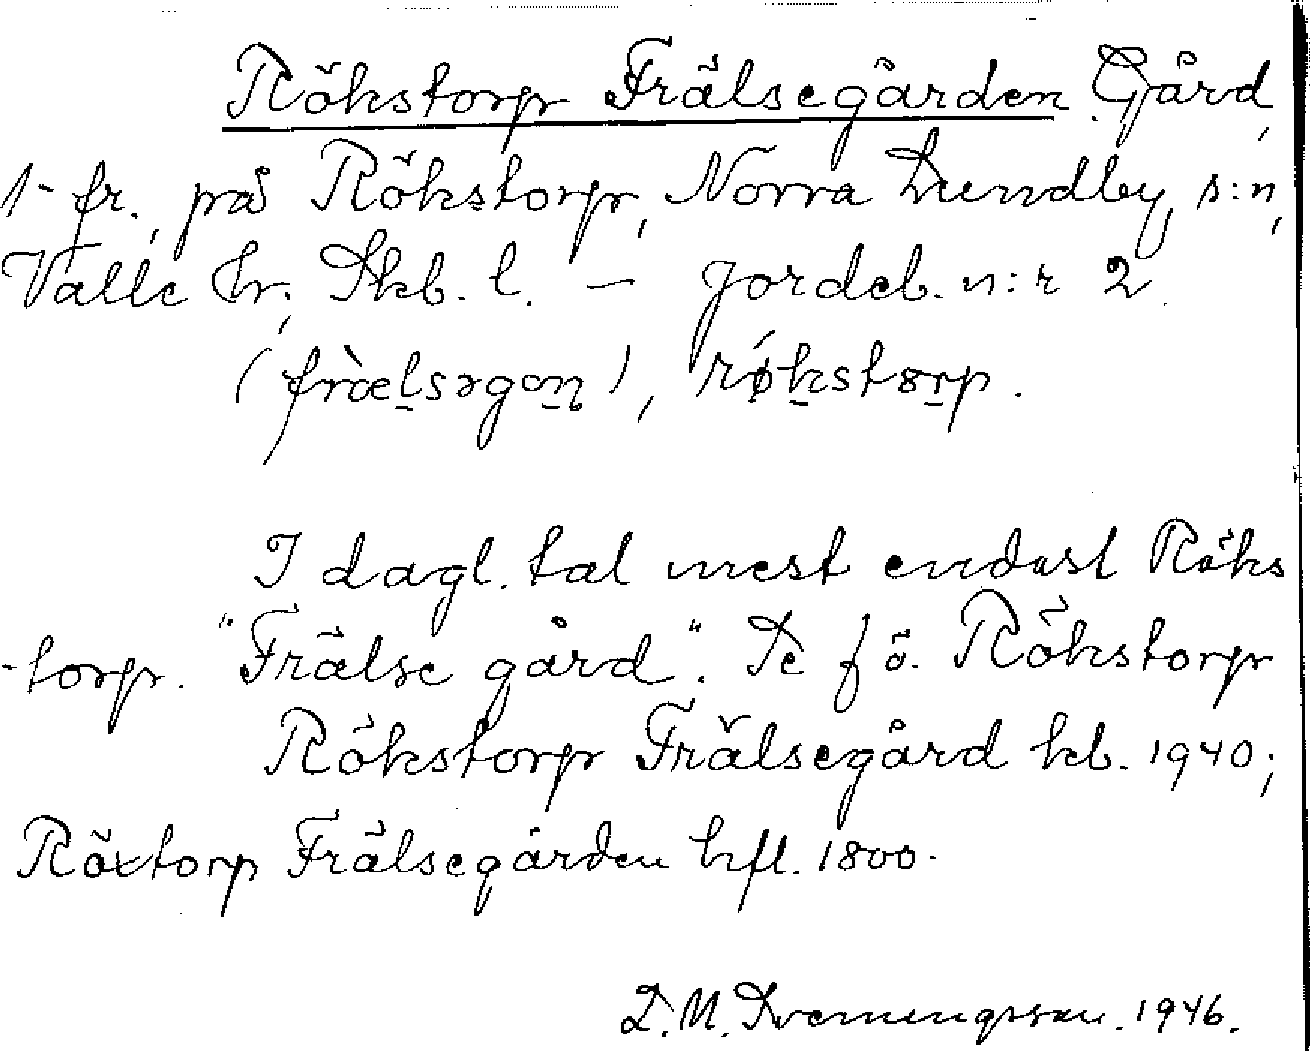 Rökstorp Frälsegården. Gård,
1 fr., på Rökstorp, Norra Lundby s:n,
Valle hr, Skb. l. – Jordeb. n:r 2.
(fræ̀lsəgan), røkstorp.
I dagl. tal mest endast Röks
-torp. "Frälse gård". Se f ö. Rökstorp
Rökstorp Frälsegård kb. 1940;
Röxtorp Frälsegården hfl. 1800.
1946.